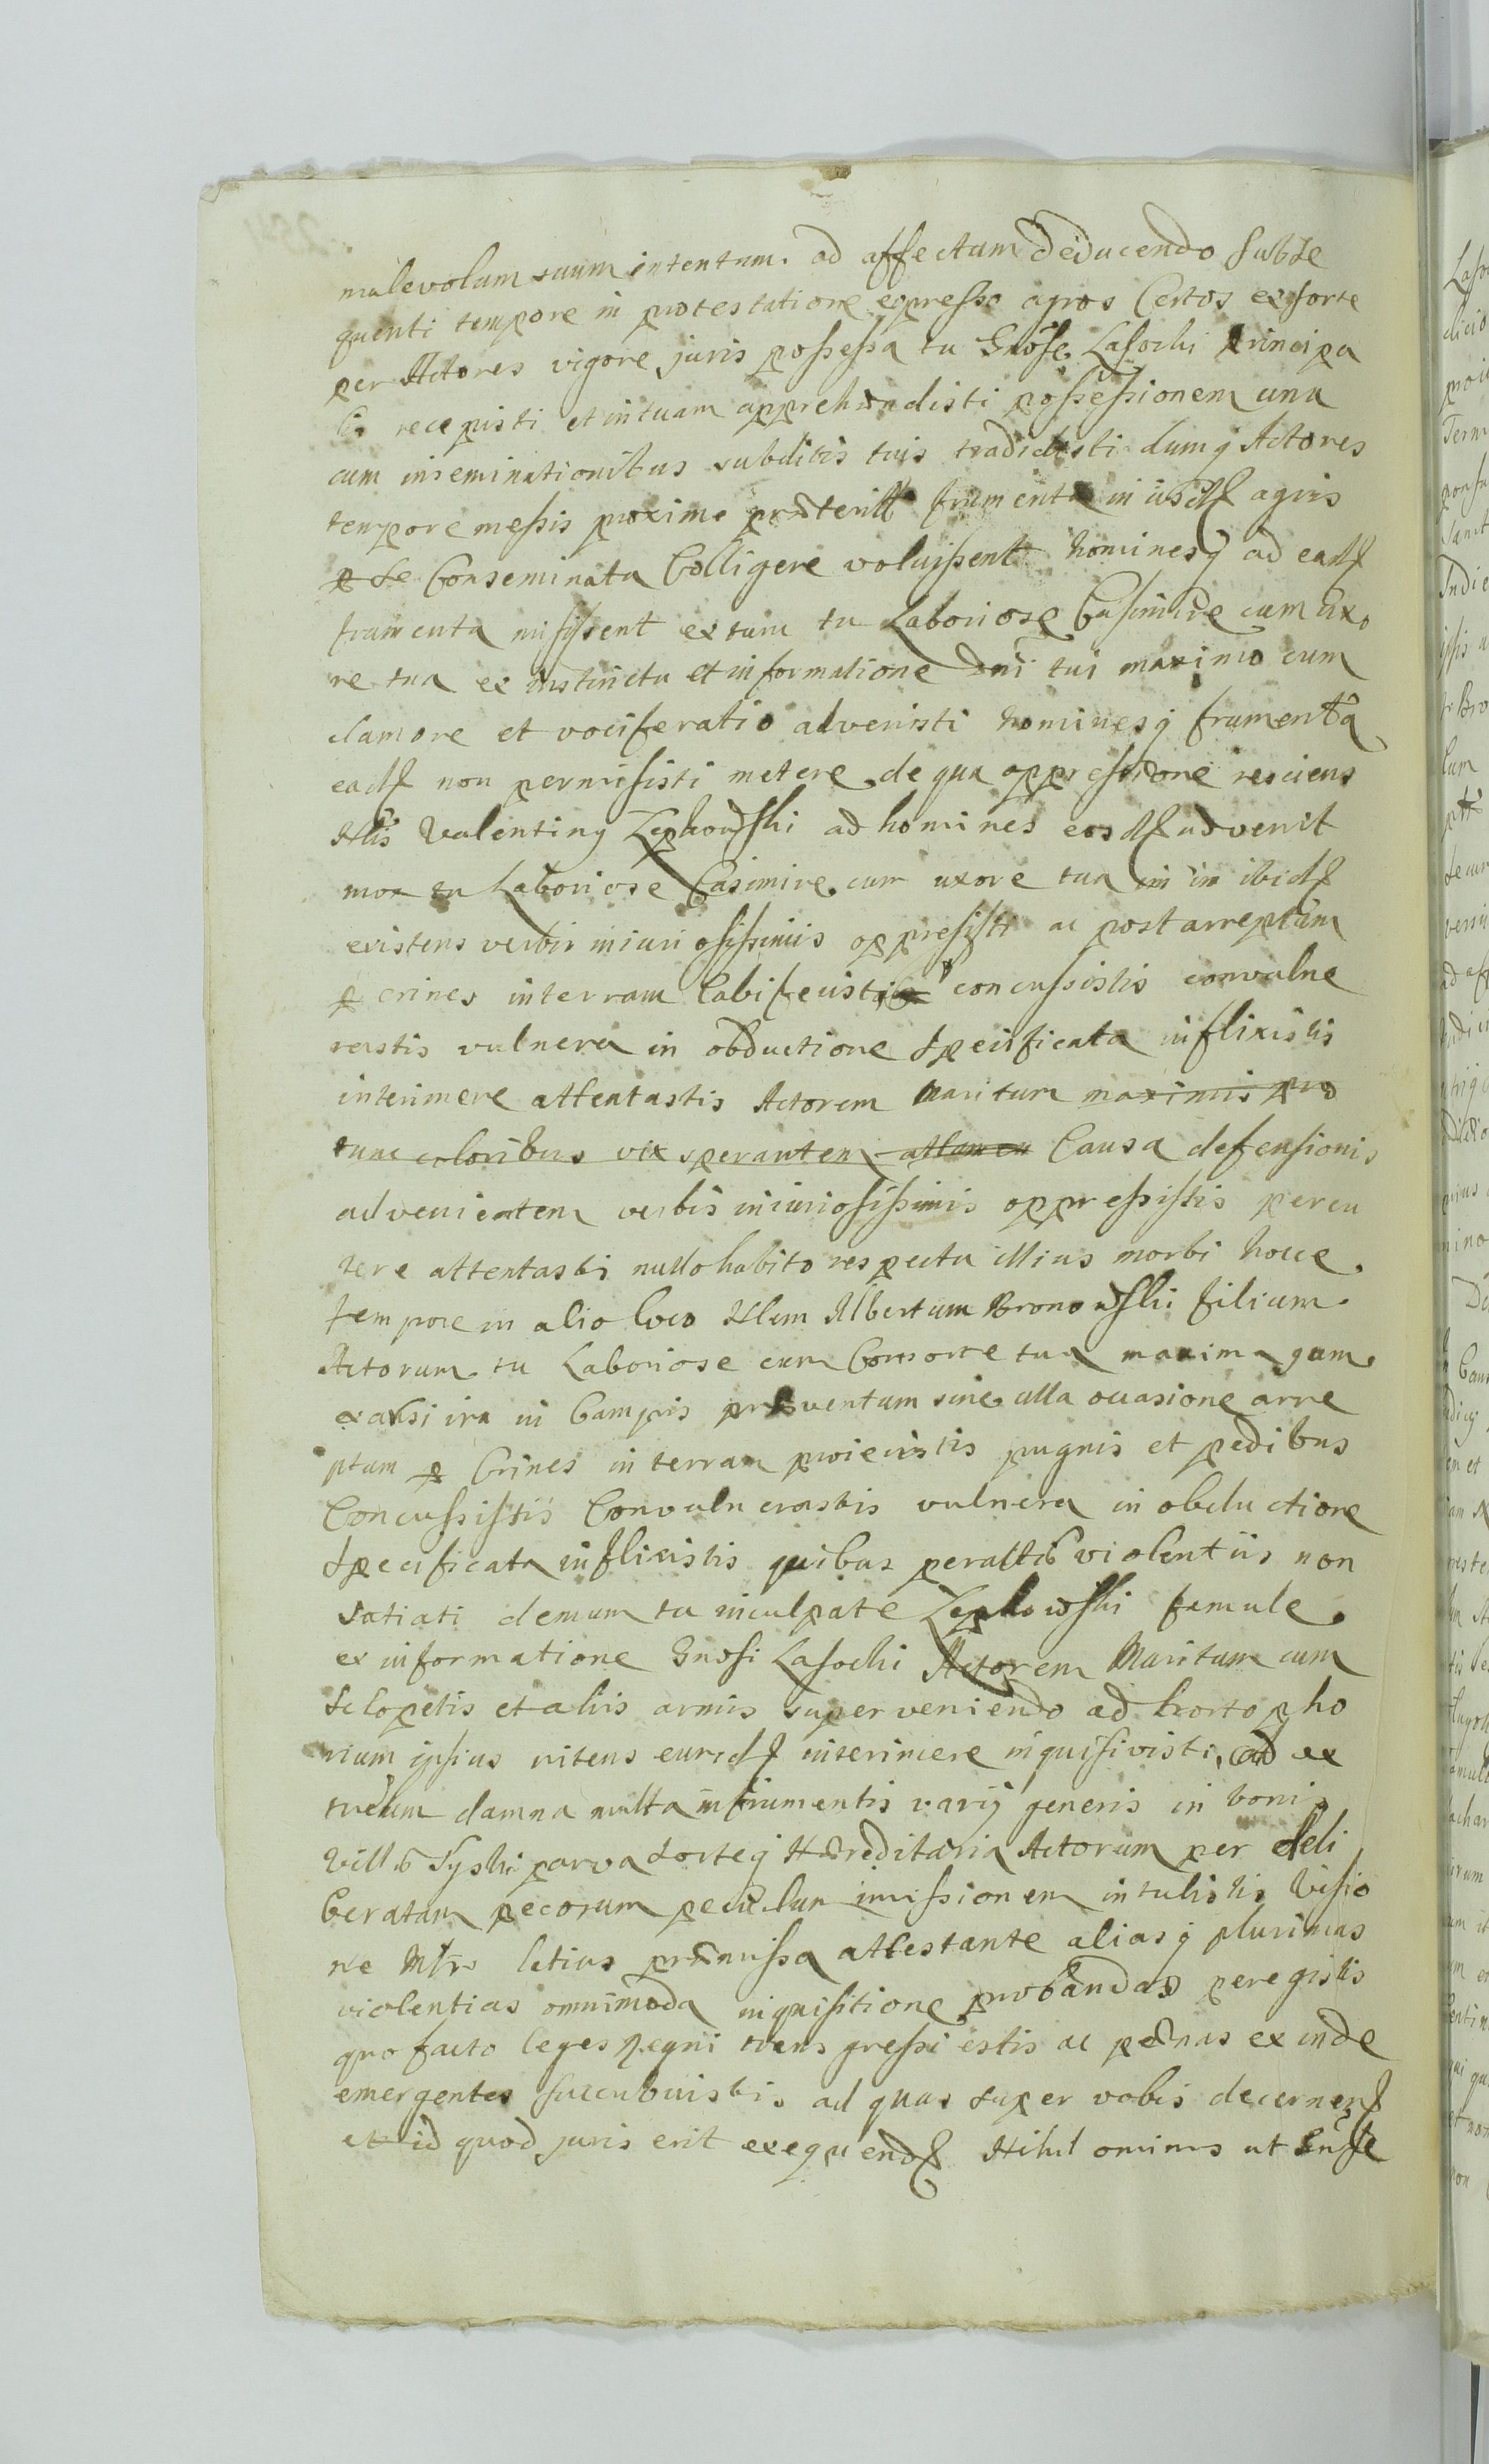 malevolum suum intentum. ad affectum deducendo subse
quenti tempore in protestatione expresso agros Certos ex sorte
per Actores vigore juris possessa tu Gnose Lasocki Principa
lis recepisti et in tuam apprehendisti possessionem una
cum inseminationibus subditis tuis tradidisti dumq Actores
tempore messis proxime præteritæ frumenta in iisdf agris
p se Conseminata Colligere voluissent hominesq ad eadf
frumenta misissent ex tunc tu Laboriose Casimire cum uxo
re tua ex instinctu et informatione Dni tui maximo cum
clamore et vociferatio advenisti hominesq frumenta
eadf non permisisti metere de qua oppressione resciens
Nlis Valentinq Zepkowski ad homines eosdf advenit
mox tu Laboriose Casimire cum uxore tua im in ibidf
existens verbis iniuriosissimis oppresisti ac post arreptum
p crines in terram Labifecistis concussistis convulne
rastis vulnera in obductione specificata inflixistis
interimere attentastis Actorem Maritum maximis pro
tunc coloribus vix sperantem attamen Causa defensionis
advenientem verbis iniuriosissimis oppressistis percu
tere attentastis nullo habito respectu illius morbi hocce
tempore in alio loco Nlem Albertum Bronowski filium
Actorum tu Laboriose cum Consorte tua maxima quam
exarsi ira in Campis præventum sine ulla occasione arre
ptum p Crines in terram proiecistis pugnis et pedibus
Concussistis Convulnerastis vulnera in obductione
specificata inflixistis quibus peractis violentiis non
satiati demum tu inculpate Zepkowski famule
ex informatione Gnosi Lasocki Actorem Maritum cum
sclopetis et aliis armis superveniendo ad hortop ho
rium ipsius nitens eundf interimere inquisivisti, ad ex
tremum damna multa in frumentis varij generis in bonis
Villæ Lyski parva sorteq Hæreditaria Actorum per deli
beratam pecorum pecudum imissionem intulistis Visio
ne Mtri latius præmissa attestante aliasq plurimas
violentias omnimoda inquisitione probandas peregistis
quo facto leges Regni transgressi estis ac pœnas ex inde
emergentes succubuistis ad quas super vobis decernenf
et id quod juris erit exequendf Nihilominus ut Gnose